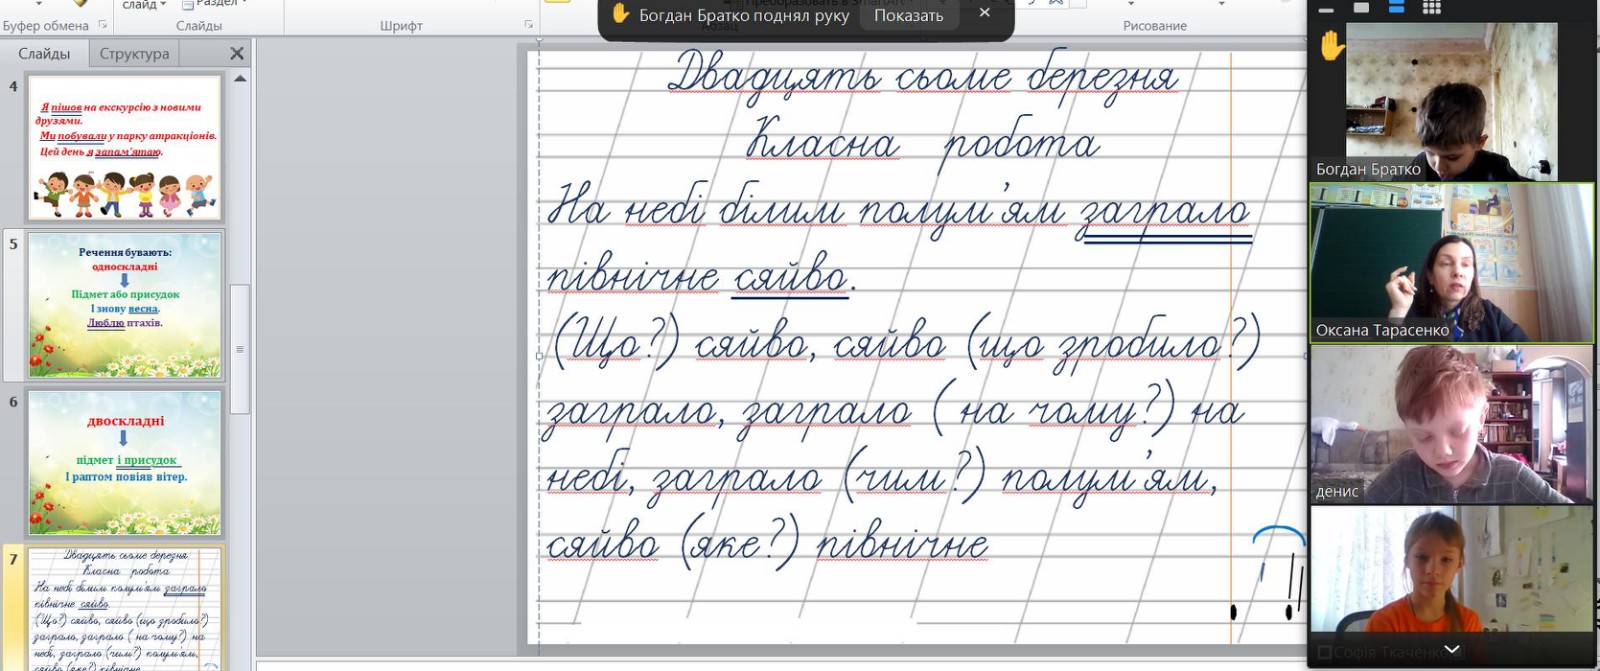 слайд
Раздел
Буфер обмена
Слайды
Шрифт
Абзац
Рисование
Преобразовать в SmartArt
Богдан Братко поднял руку
Показать
Слайды
Структура
4
Я пішов на екскурсію з новими
друзями.
Ми побували у парку атракціонів.
Цей день я запам'ятаю.
5
Речення бувають:
односкладні
Підмет або присудок
І знову весна.
Люблю птахів.
6
двоскладні
підмет і присудок
І раптом повіяв вітер.
7
Двадцять сьоме березня
Класна робота
На небі білим полум'ям заграло
північне сяйво.
(Що?) сяйво, сяйво (що зробило?)
заграло, заграло ( на чому?) на
небі, заграло (чим?) полум'ям,
сяйво (яке?) північне
Двадцять сьоме березня
Класна робота
На небі білим полум'ям заграло
північне сяйво.
(Що?) сяйво, сяйво (що зробило?)
заграло, заграло ( на чому?) на
небі, заграло (чим?) полум'ям,
сяйво (яке?) північне
Богдан Братко
Оксана Тарасенко
денис
Софія Ткаченко